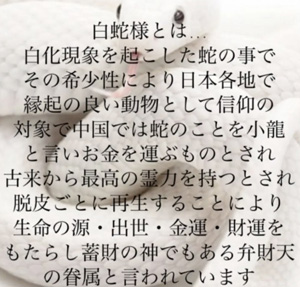 白蛇様とは…
白化現象を起こした蛇の事で
その希少性により日本各地で
縁起の良い動物として信仰の
対象で中国では蛇のことを小龍
と言いお金を運ぶものとされ
古来から最高の霊力を持つとされ
脱皮ごとに再生することにより
生命の源・出世・金運・財運を
もたらし蓄財の神でもある弁財天
の眷属と言われています